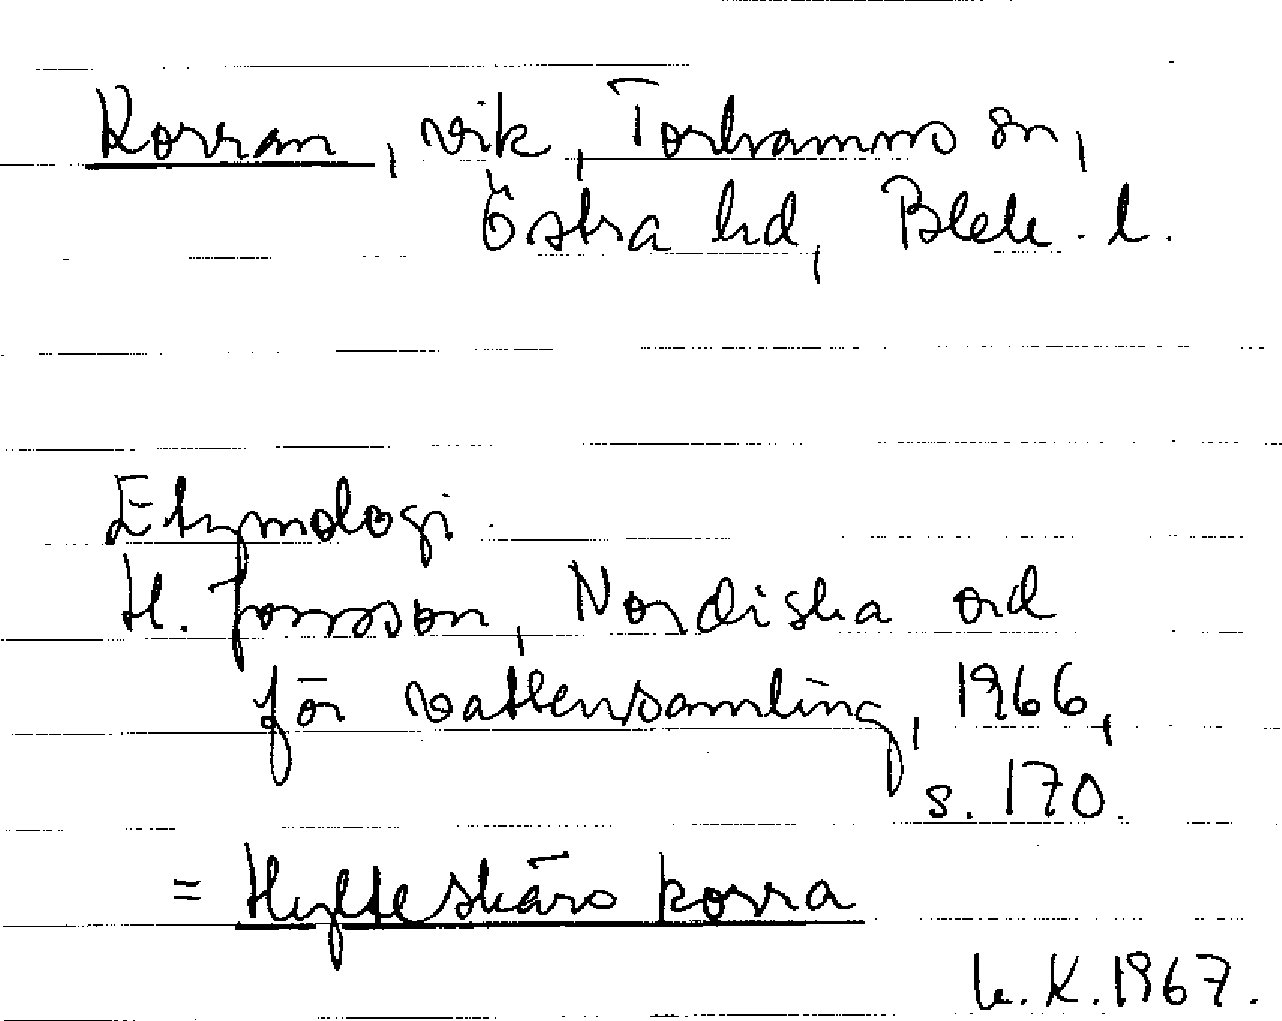 Korran, vik, Torhamns sn,
Östra hd, Blek. l.
Etymologi
H. Jonsson, Nordiska ord
för vattensamling, 1966,
s. 170.
= Hyfteskärs korra
K. 1967.